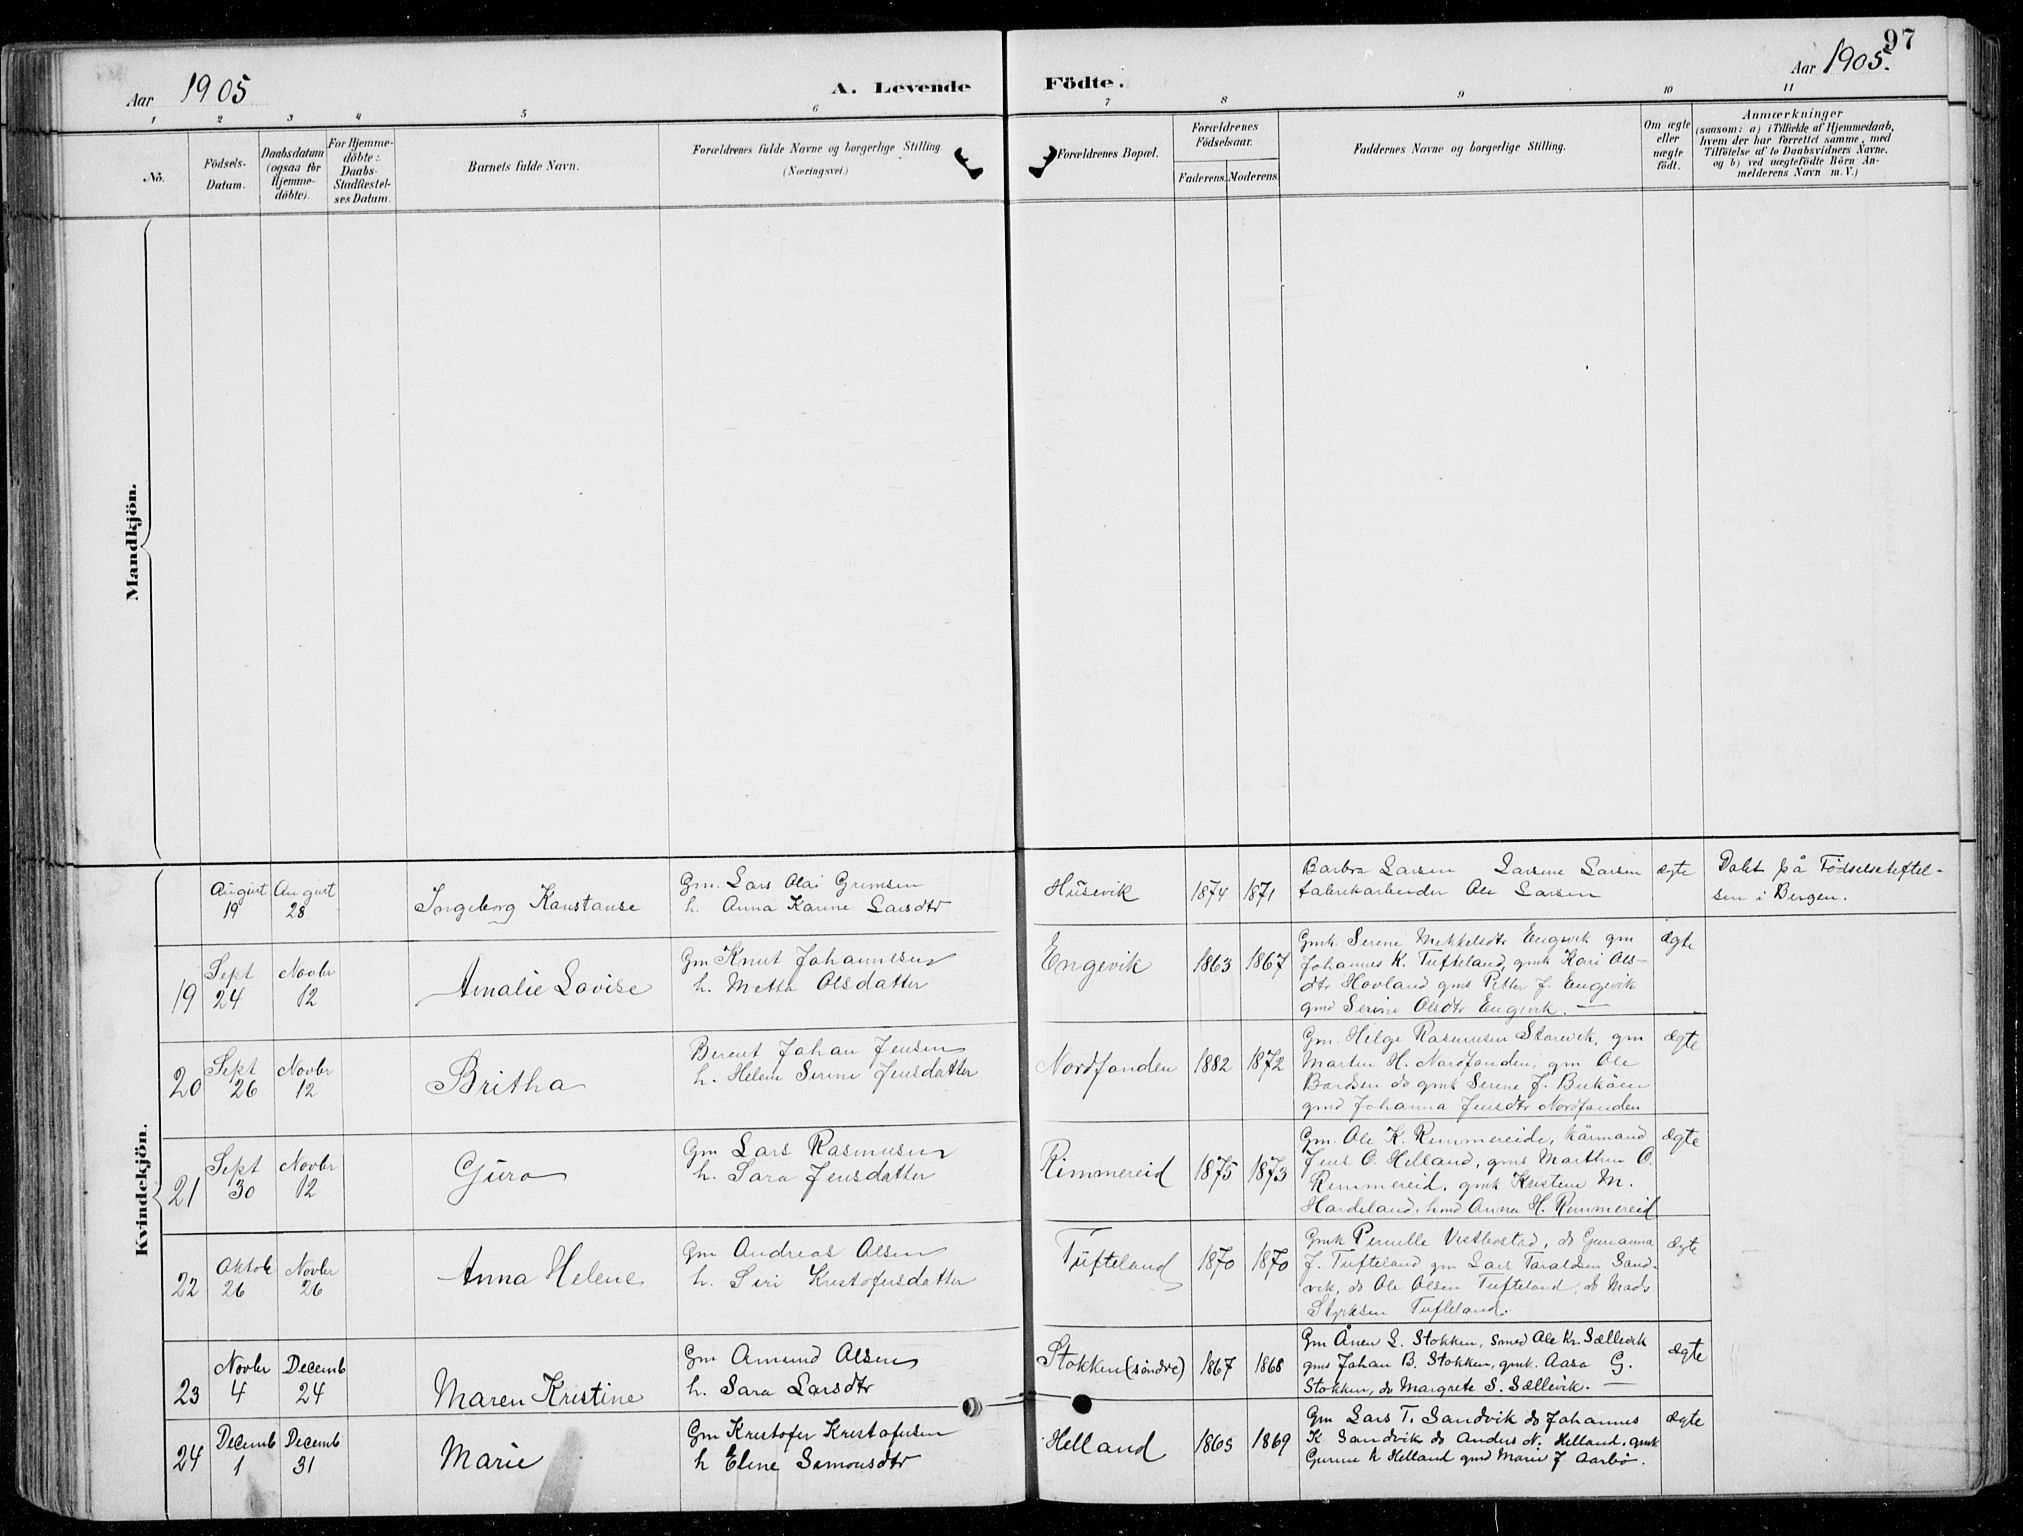 97
Aar 1905
A. Levende
Födte.
Aar 1905.
1 2 3 4 5 6 7 8 9 10 11
No.
Födsels-
Datum.
Daabsdatum
(ogsaa för
Hjemme-
döbte).
For Hjemme-
döbte:
Daabs-
Stadfæstel-
ses Datum.
Barnets fulde Navn.
Forældrenes fulde Navne og borgerlige Stilling
(Næringsvei.)
Forældrenes Bopæl.
Forældrenes
Födselsaar.
Faderens. Moderens.
Faddernes Navne og borgerlige Stilling.
Om ægte
eller
uægte
födt.
Anmærkninger
(saasom: a) i Tilfælde af Hjemmedaab,
hvem der har forrettet samme, med
Tilföielse af to Daabsvidners Navne.
og b) ved uægtefödte Börn An-
melderens Navn m. V.)
Mandkjön.
Kvindekjön.
August
19
August
28
Ingeborg Konstanse
Gm. Lars Olai Grimsen
h. Anna Karine Larsdtr
Husevik
1874
1871
Barbra Larsen Larsine Larsen
fabrikarbeider Ole Larsen
ægte
Døbt på Fødselsstiftel-
sen i Bergen.
19
Sept
24
Novbr
12
Amalie Lovise
Gm Knut Johannesen
h. Metha Olsdatter
Engevik
1863
1867
Gmk. Serine Mikkelsdtr Engevik gm
Johannes K. Tufteland, gmk Kari Ols-
dtr Hovland gms Petter J. Engevik
gmd Serine Olsdtr Engevik. —
ægte
20
Sept
26
Novbr
12
Britha
Berent Johan Jensen
h. Helene Serine Jensdatter
Nordfonden
1882
1872
Gm. Helge Rasmusen Storevik, gm
Martin H. Nordfonden, gm Ole
Bardsen do gmk Serine J.
gmd Johanna Jensdtr Nordfonden
ægte
21
Sept
30
Novbr
12
Guro
Gm Lars Rasmusen
h. Sara Jensdatter
Rimmereid
1875
1873
Gm. Ole K. Rimmereide, kårmand
Jens O. Helland, gms Marthin O.
Rimmereid, gmk Kristine M.
Hardeland. hmd Anna H. Rimmereid
ægte
22
Oktob
26
Novbr
26
Anna Helene
Gm Andreas Olsen
h. Siri Kristofersdatter
Tufteland
1870
1870
Gmk Pernille Vestbostad, do Gurianna
J. Tufteland gm Lars Taraldsen Sand-
vik, do Ole Olsen Tufteland, do Mads
Styrksen Tufteland.
ægte
23
Novbr
4
Decemb
24
Maren Kristine
Gm Amund Olsen
h. Sara Larsdtr
Stokken (søndre)
1867
1868
Gm Ånen L. Stokken, smed Ole Kr. Sællevik
gms Johan B. Stokken, gmk. Aasa G.
Stokken, do Margrete S. Sællevik. —
ægte
24
Decemb
1
Decemb
31
Marie
Gm Kristofer Kristofersen
h Eline Simonsdtr
Helland
1865
1869
Gm Lars T. Sandvik do Johannes
K Sandvik do Anders N. Helland. gmk
Gurine K Helland gmd Marie J Aarbø.
ægte